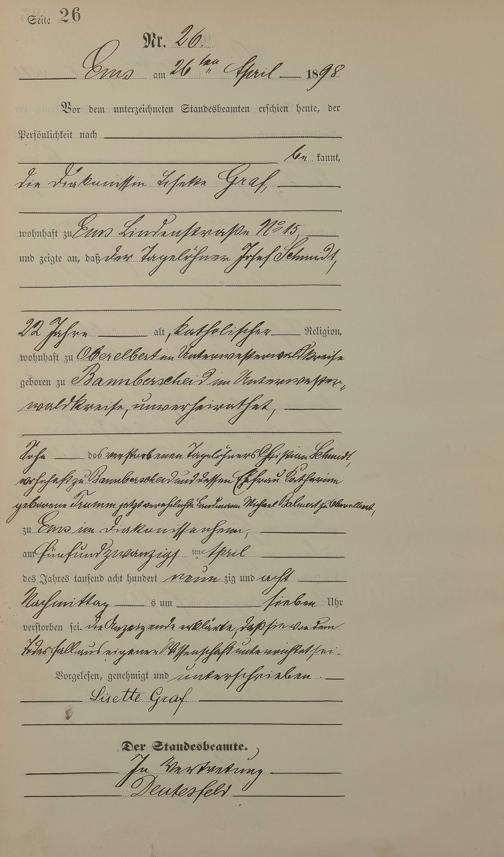 Seite 26
Nr. 26.
Ems am 26ten April 1898
Vor dem unterzeichneten Standesbeamten erschien heute, der
Persönlichkeit nach
be kannt,
die Diakonissin Lisette Graf,
wohnhaft zu Ems Lindenstraße No 15,
und zeigte an, daß der Tagelöhner Josef Schmidt,
22 Jahre alt, katholischer Religion,
wohnhaft zu Oberelbert im Unterwesterwaldkreise
geboren zu Bannberscheid im Unterwester-
waldkreise, unverheirathet,
Sohn des verstorbenen Tagelöhners Christian Schmidt,
wohnhaft zu Bannberscheid und dessen Ehefrau Katharina
geborene jetzt verehelichte Landmann Michael zu Oberelbert,
zu Ems im Diakonissenheim,
am fünfundzwanzigsten April
des Jahres tausend acht hundert neun zig und acht
Nachmittag s um sieben Uhr
verstorben sei. die Anzeigende erklärte, daß sie von dem
Todesfall aus eigener Wissenschaft unterrichtet sei.
Vorgelesen, genehmigt und unterschrieben.
Lisette Graf
Der Standesbeamte.
In Vertretung